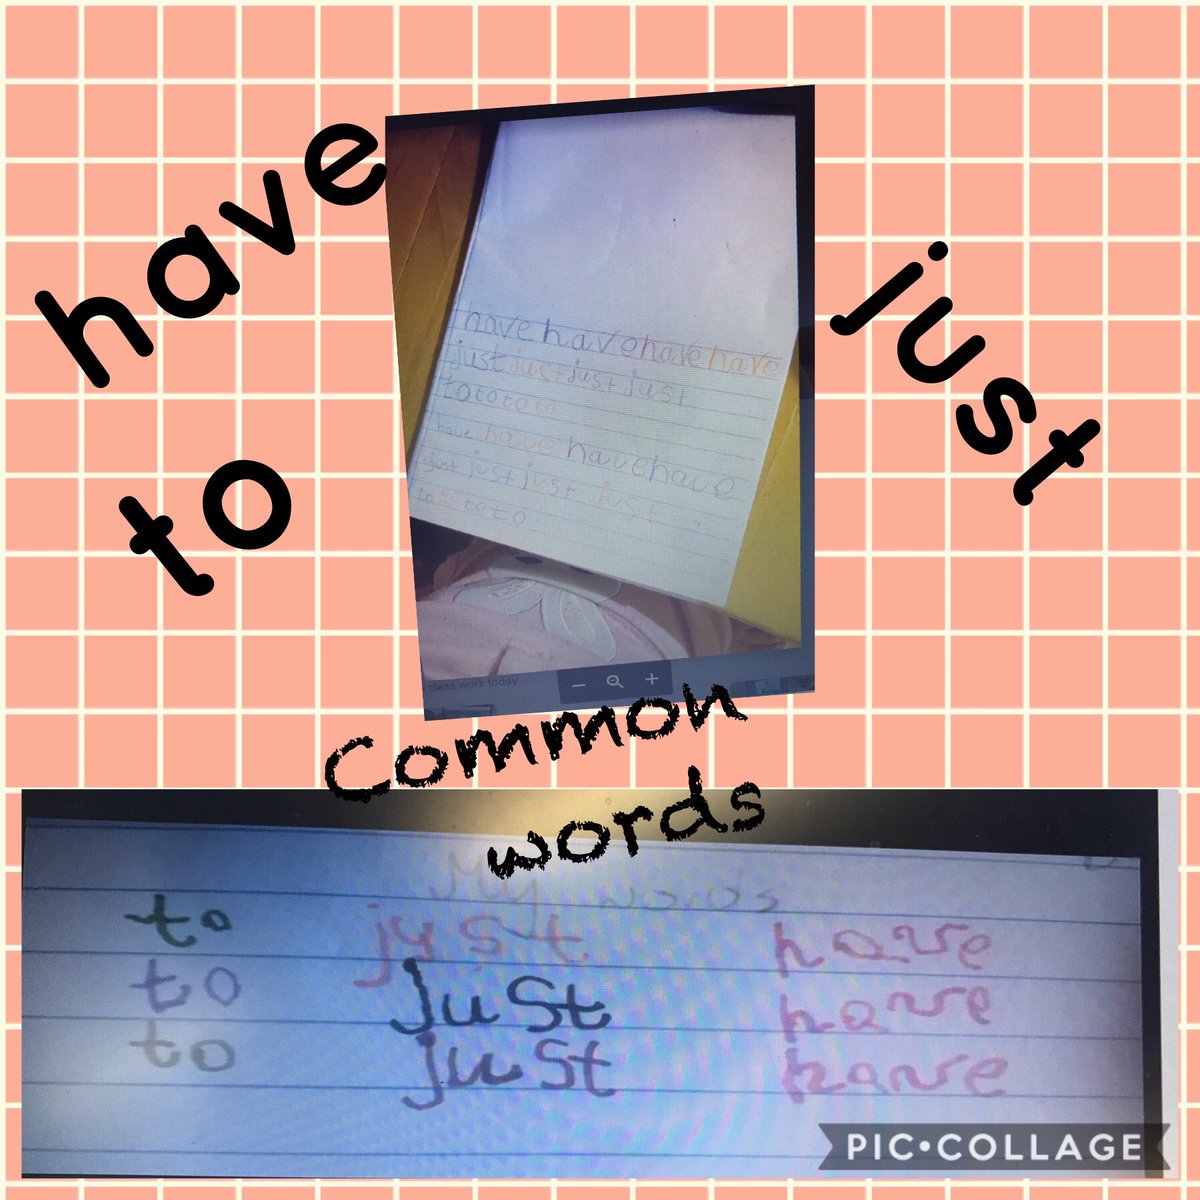 have
just
to
have have have have
just just just just
to to to to
have have have have
just just just just
to to to to to
class work today
Common
words
My words
to just have
to just have
to just have
PIC•COLLAGE